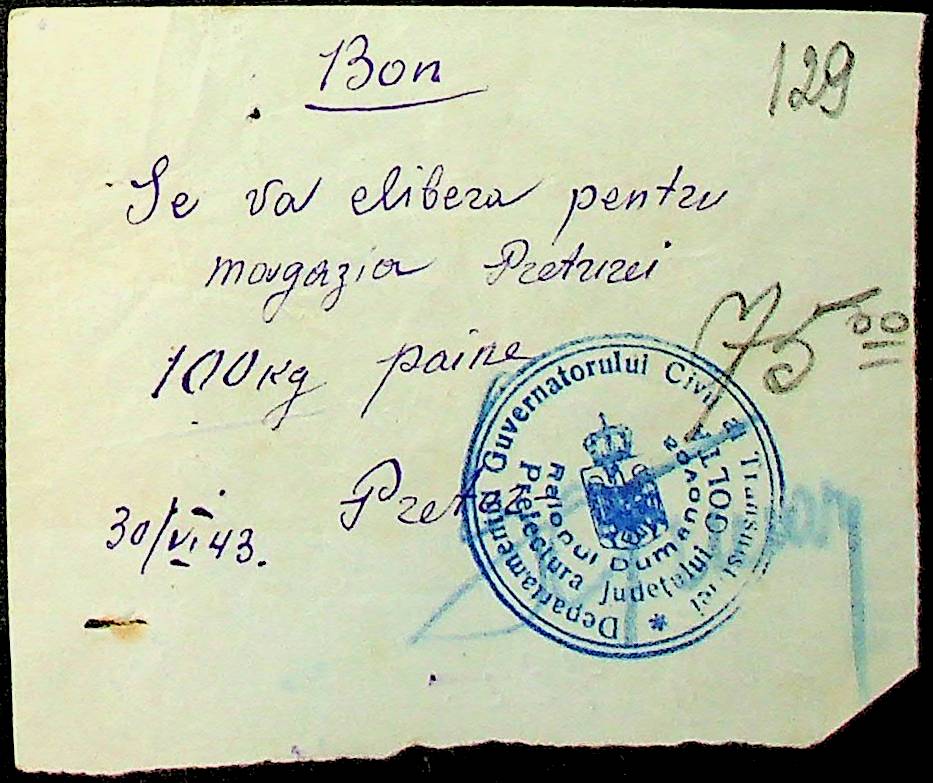 Bon
129
Se va elibera pentru
magazia Preturei
100 kg paine
75 00
Pretor
30/VI 43.
Departamentul Guvernatorului Civil al Transnistriei
Prefectura Județului GOLTA
Raionul Dumanovca